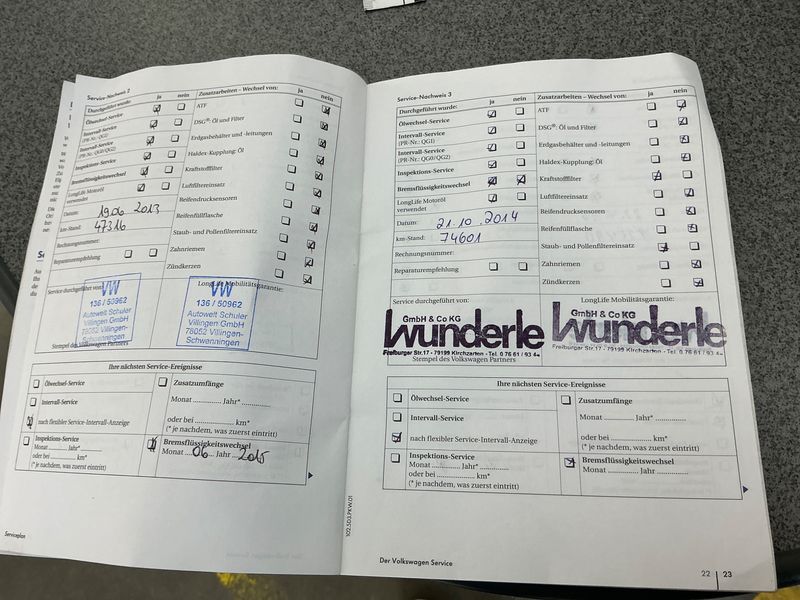 Service-Nachweis 2
ja
nein
Zusatzarbeiten – Wechsel von:
ja
nein
Durchgeführt wurde:
Ölwechsel-Service
Intervall-Service
(PR-Nr.: QG1)
Intervall-Service
(PR-Nr.: QG0/QG2)
Inspektions-Service
Bremsflüssigkeitswechsel
LongLife Motoröl
verwendet
Datum: 19.06 2013
km-Stand: 47316
Rechnungsnummer:
Reparaturempfehlung
ATF
DSG®: Öl und Filter
Erdgasbehälter und -leitungen
Haldex-Kupplung: Öl
Kraftstofffilter
Luftfiltereinsatz
Reifendrucksensoren
Reifenfüllflasche
Staub- und Pollenfiltereinsatz
Zahnriemen
Zündkerzen
Service durchgeführt von:
LongLife Mobilitätsgarantie:
VW
136 / 50962
Autowelt Schuler
Villingen GmbH
78052 Villingen-
Schwenningen
VW
136 / 50962
Autowelt Schuler
Villingen GmbH
78052 Villingen-
Schwenningen
Stempel des Volkswagen Partners
Ihre nächsten Service-Ereignisse
Ölwechsel-Service
Intervall-Service
nach flexibler Service-Intervall-Anzeige
Inspektions-Service
Monat ............ Jahr* ..............
oder bei ............ km*
(* je nachdem, was zuerst eintritt)
Zusatzumfänge
Monat ............ Jahr* ..............
oder bei ............ km*
(* je nachdem, was zuerst eintritt)
Bremsflüssigkeitswechsel
Monat 06 Jahr 2015
Serviceplan
102.5D3.PKW.01
Service-Nachweis 3
ja
nein
Zusatzarbeiten – Wechsel von:
ja
nein
Durchgeführt wurde:
Ölwechsel-Service
Intervall-Service
(PR-Nr.: QG1)
Intervall-Service
(PR-Nr.: QG0/QG2)
Inspektions-Service
Bremsflüssigkeitswechsel
LongLife Motoröl
verwendet
Datum: 21.10.2014
km-Stand: 74601
Rechnungsnummer:
Reparaturempfehlung
ATF
DSG®: Öl und Filter
Erdgasbehälter und -leitungen
Haldex-Kupplung: Öl
Kraftstofffilter
Luftfiltereinsatz
Reifendrucksensoren
Reifenfüllflasche
Staub- und Pollenfiltereinsatz
Zahnriemen
Zündkerzen
Service durchgeführt von:
LongLife Mobilitätsgarantie:
GmbH & Co KG
Wunderle
Freiburger Str.17 - 79199 Kirchzarten - Tel. 0 76 61 / 93 4
GmbH & Co KG
Wunderle
Freiburger Str.17 - 79199 Kirchzarten - Tel. 0 76 61 / 93 4
Stempel des Volkswagen Partners
Ihre nächsten Service-Ereignisse
Ölwechsel-Service
Intervall-Service
nach flexibler Service-Intervall-Anzeige
Inspektions-Service
Monat ............ Jahr* ..............
oder bei ............ km*
(* je nachdem, was zuerst eintritt)
Zusatzumfänge
Monat ............ Jahr* ..............
oder bei ............ km*
(* je nachdem, was zuerst eintritt)
Bremsflüssigkeitswechsel
Monat ............ Jahr ..............
Der Volkswagen Service
22 | 23